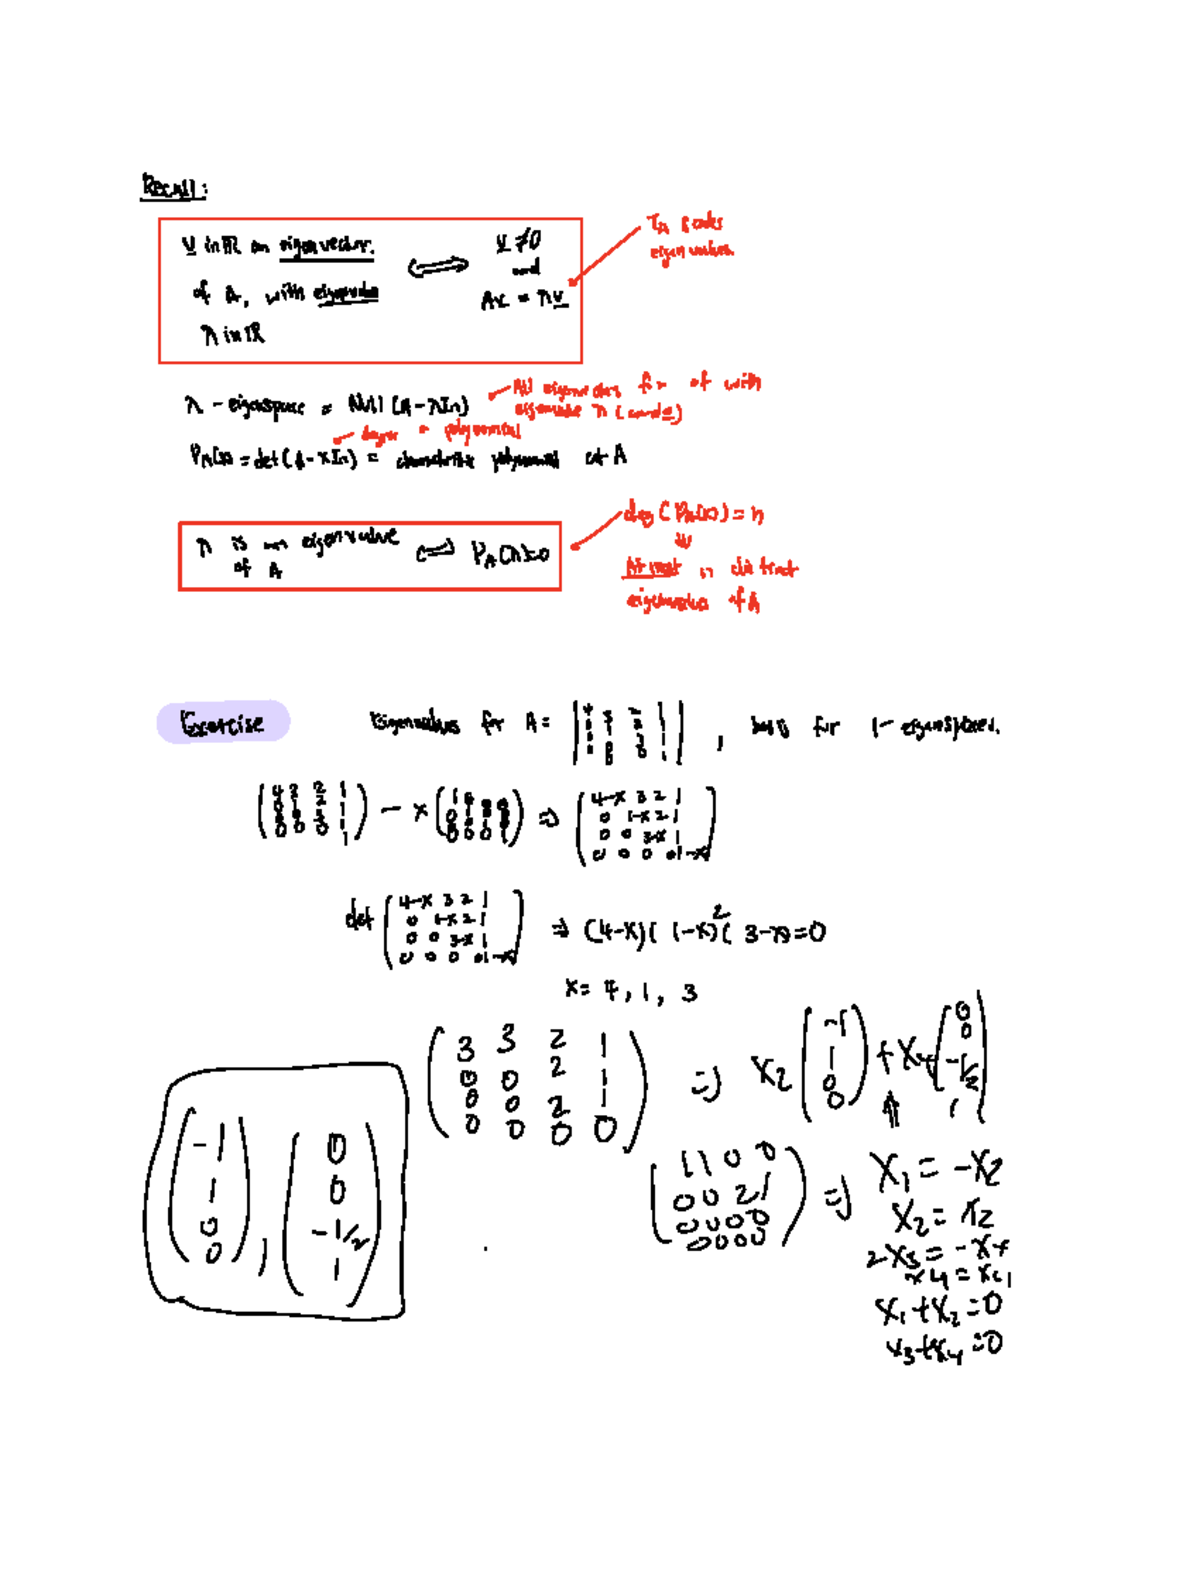 Recall:
v in R an eigenvector. ⟺ v ≠ 0
of A, with eigenvalue and
λ in R Av = λv
TA scales
eigenvalues.
λ - eigenspace = Null (A - λIn)
All eigenvectors for of with
eigenvalue λ (and 0)
degree polynomial
PA(x) = det (A - xIn) = polynomial of A
λ is an eigenvalue ⟺ PA(λ)=0
of A
deg (PA(x)) = n
⇓
At most n distinct
eigenvalues of A
Exercise Eigenvalues for A = , basis for 1 - eigenspaces.
- x ⇒
4-x 3 2 1
0 1-x 2 1
0 0 3-x 1
0 0 0 1-x
det
4-x 3 2 1
0 1-x 2 1
0 0 3-x 1
0 0 0 1-x
⇒ (4-x)(1-x)²(3-x)=0
x = 4, 1, 3
3 3 2 1
0 0 2 1
0 0 2 1
0 0 0 0
⇒ x2 (-1 1 0 0) + x4 (0 0 -1/2 1)
1 1 0 0
0 0 2 1
0 0 0 0
0 0 0 0
⇒ x1 = -x2
x2 = x2
2x3 = -x4
x4 = x4
x1 + x2 = 0
x3 + x4 = 0
(-1 1 0 0), (0 0 -1/2 1)